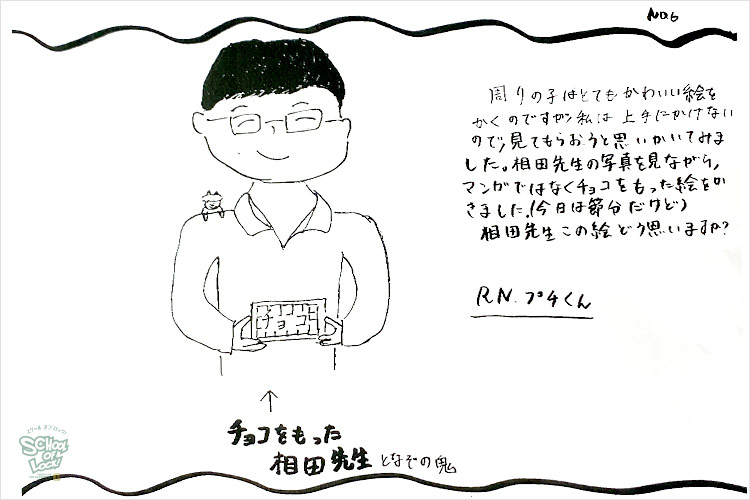 No.6
周りの子はとてもかわいい絵を
かくのですが、私は上手にかけない
ので、見てもらおうと思いかいてみま
した。相田先生の写真を見ながら、
マンガではなくチョコをもった絵をか
きました。(今日は節分だけど)
相田先生この絵どう思いますか?
R.N.プチくん
チョコ
↑
チョコをもった
相田先生となぞの鬼
スクールオブロック!
SCHOOL
OF
LOCK!